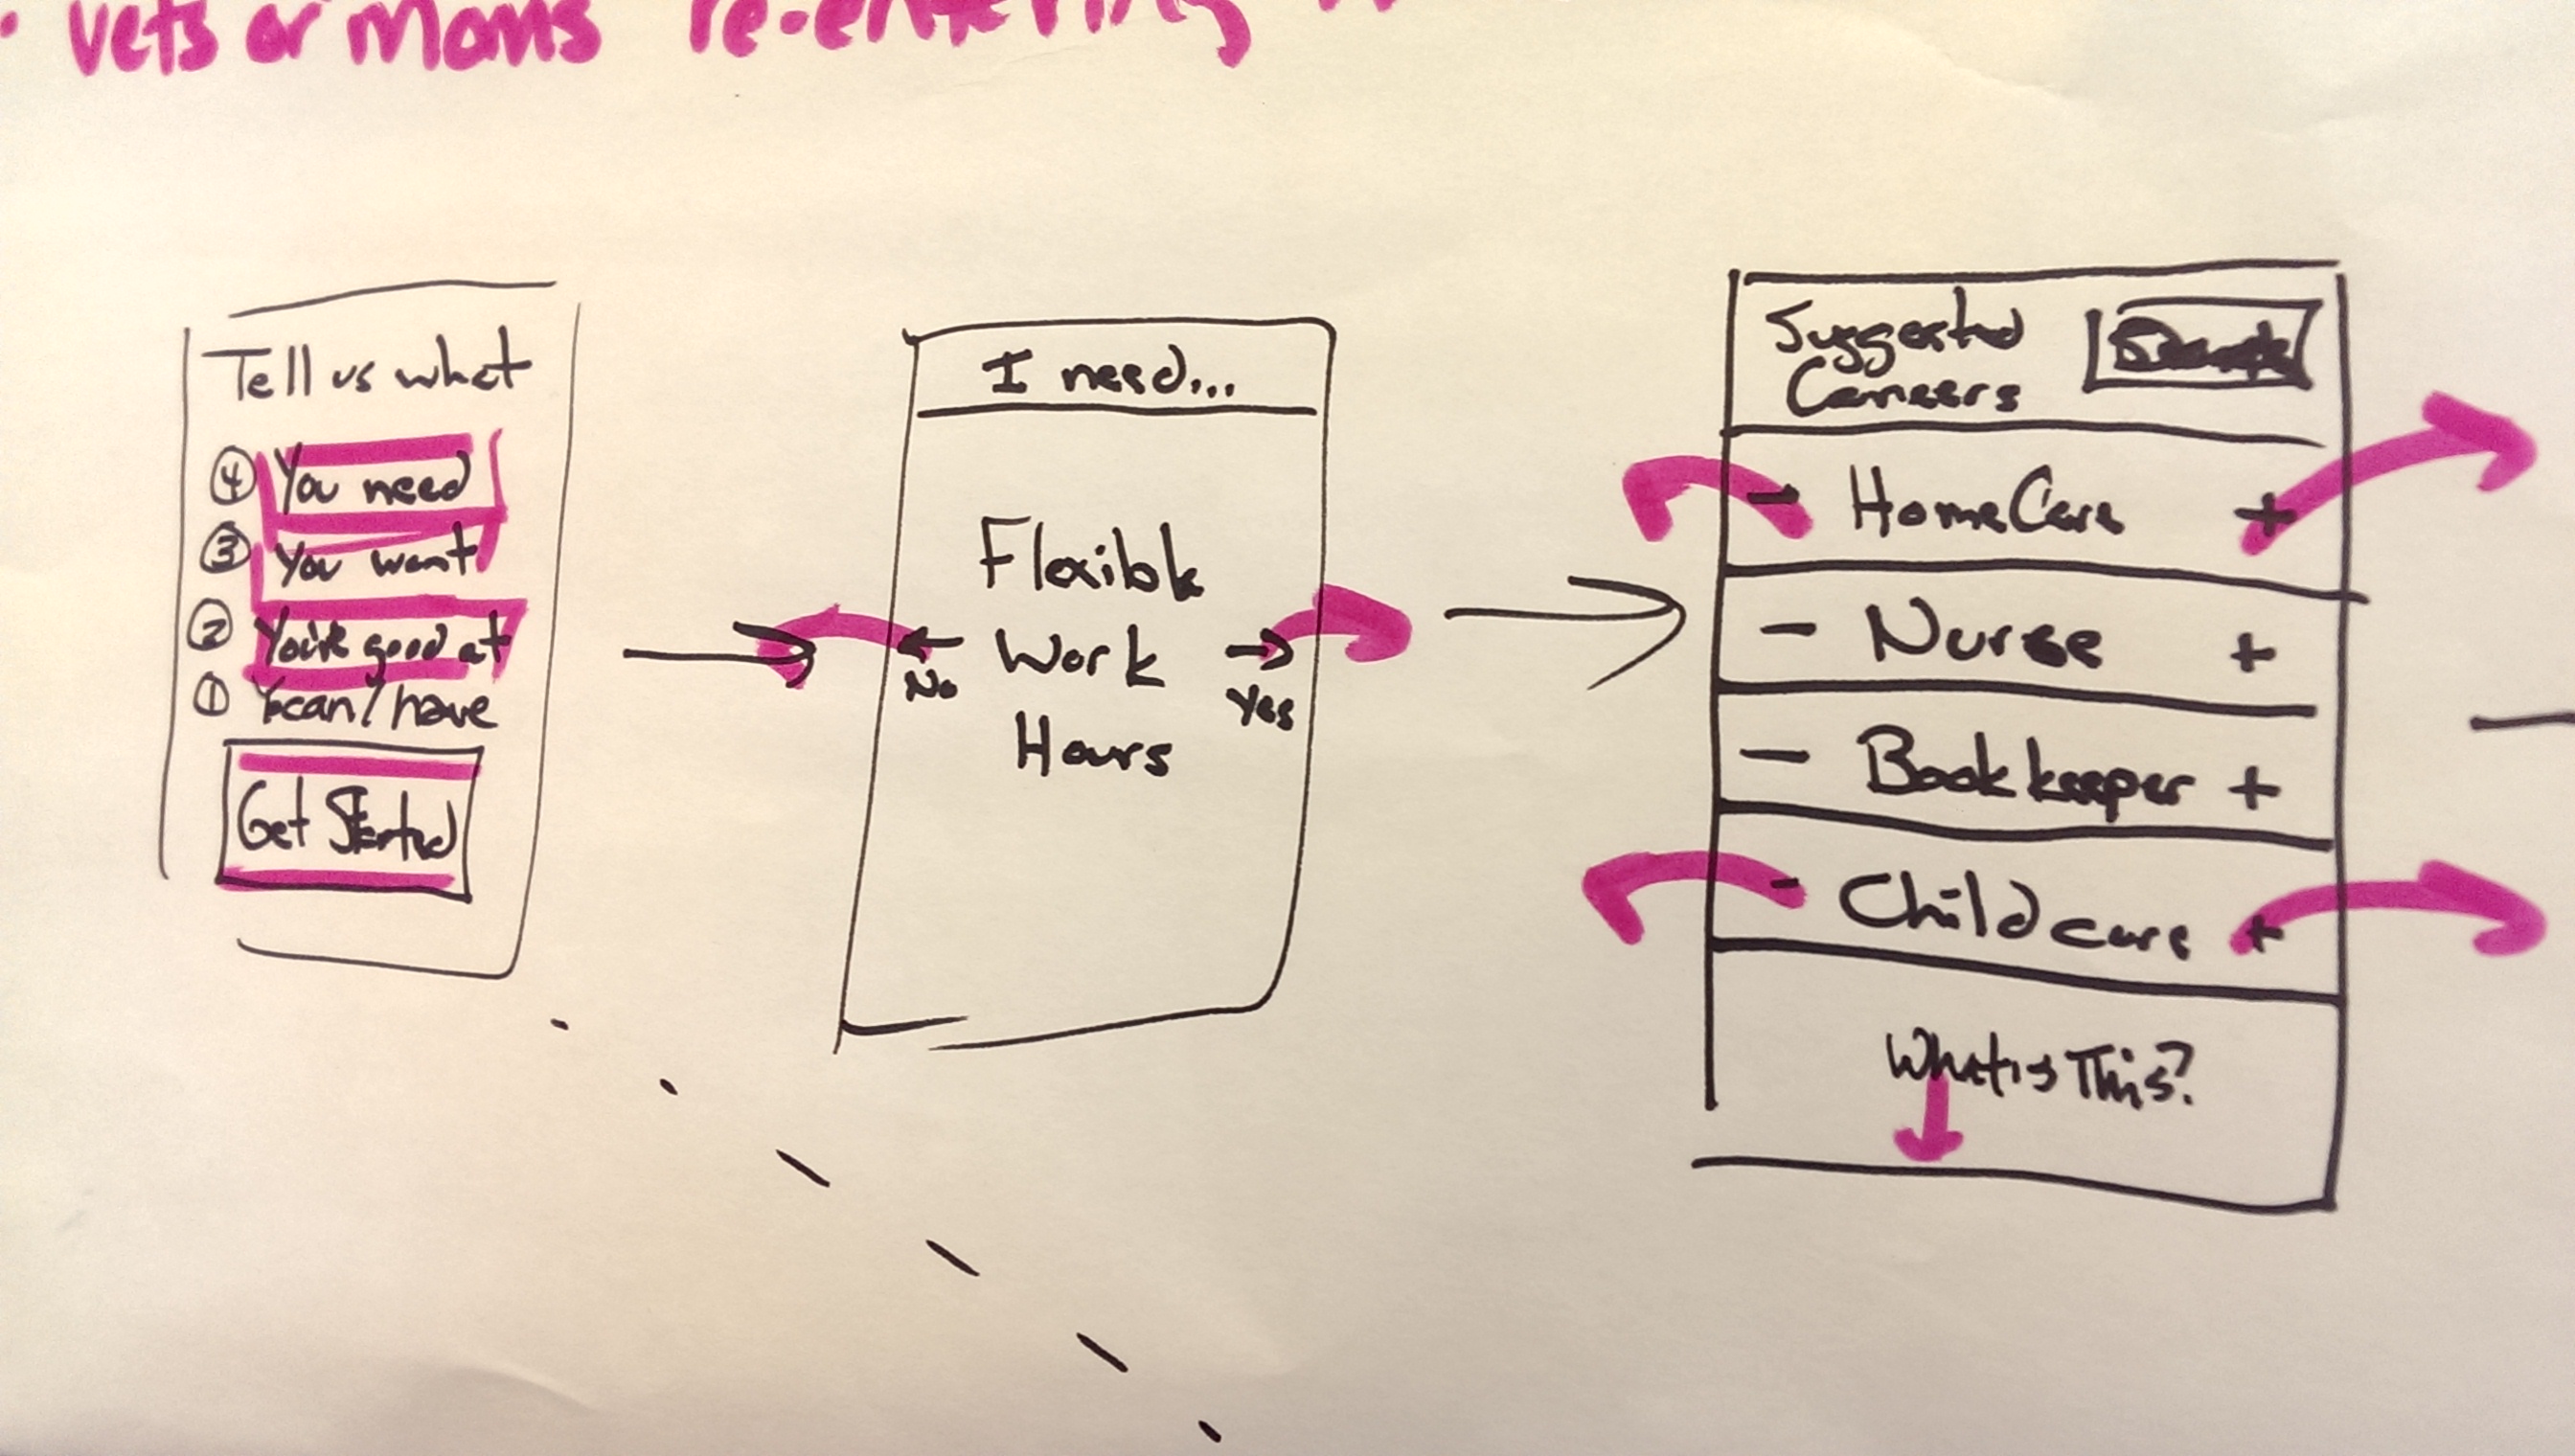 • vets or moms re-entering
Tell us what
④ You need
③ You want
② You're good at
① can / have
Get Started
I need...
Flexible
Work
Hours
← No
→ Yes
Suggested
Careers
- HomeCare +
- Nurse +
- Bookkeeper +
- Childcare +
What is This?